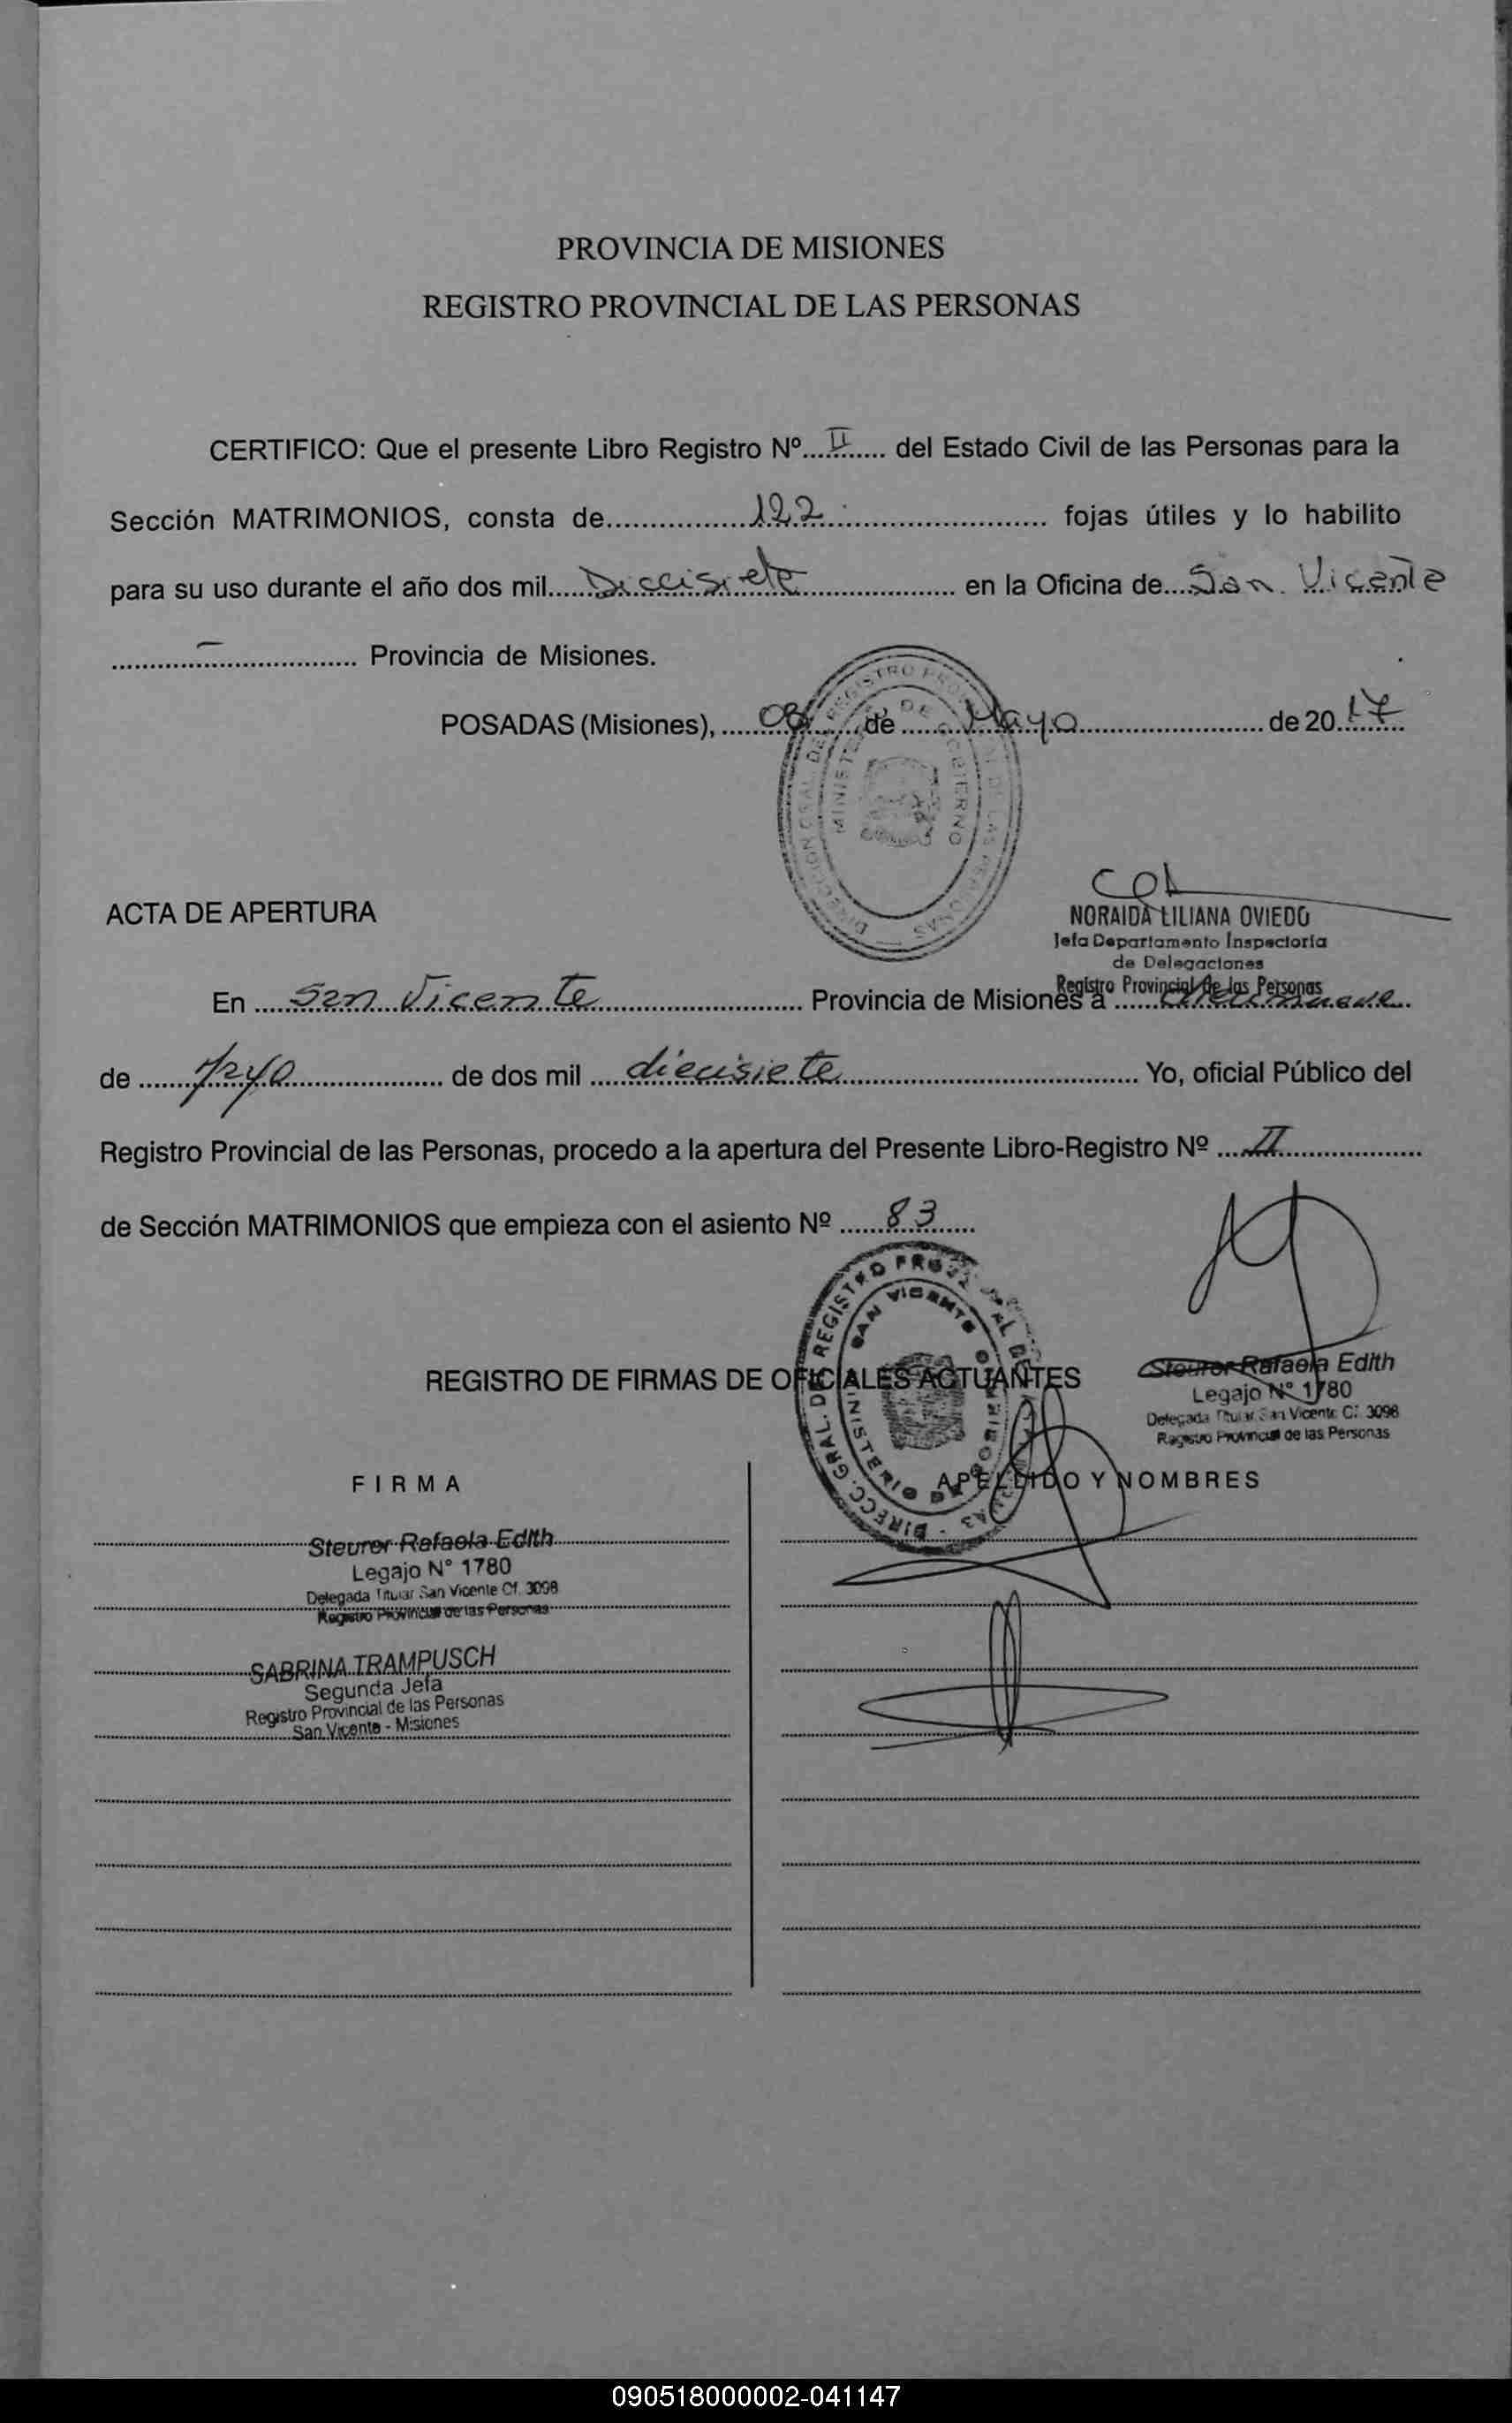 PROVINCIA DE MISIONES
REGISTRO PROVINCIAL DE LAS PERSONAS
CERTIFICO: Que el presente Libro Registro Nº....II...... del Estado Civil de las Personas para la
Sección MATRIMONIOS, consta de................122............................ fojas útiles y lo habilito
para su uso durante el año dos mil......Diecisiete.................. en la Oficina de....San Vicente
.........–................ Provincia de Misiones.
POSADAS (Misiones), .....08..... de .......Mayo...................... de 20.17....
ACTA DE APERTURA
NORAIDA LILIANA OVIEDO
Jefa Departamento Inspectoría
de Delegaciones
Registro Provincial de las Personas
En ....San Vicente........................ Provincia de Misiones a ......
de .......Mayo.................. de dos mil .....diecisiete.................................. Yo, oficial Público del
Registro Provincial de las Personas, procedo a la apertura del Presente Libro-Registro Nº ....II...................
de Sección MATRIMONIOS que empieza con el asiento Nº ......83......
Steurer Rafaela Edith
Legajo N° 1780
Delegada Titular San Vicente Cf. 3098
Registro Provincial de las Personas
REGISTRO DE FIRMAS DE OFICIALES ACTUANTES
SAN VICENTE
FIRMA
APELLIDO Y NOMBRES
Steurer Rafaela Edith
Legajo N° 1780
Delegada Titular San Vicente Cf. 3098
Registro Provincial de las Personas
SABRINA TRAMPUSCH
Segunda Jefa
Registro Provincial de las Personas
San Vicente - Misiones
090518000002-041147